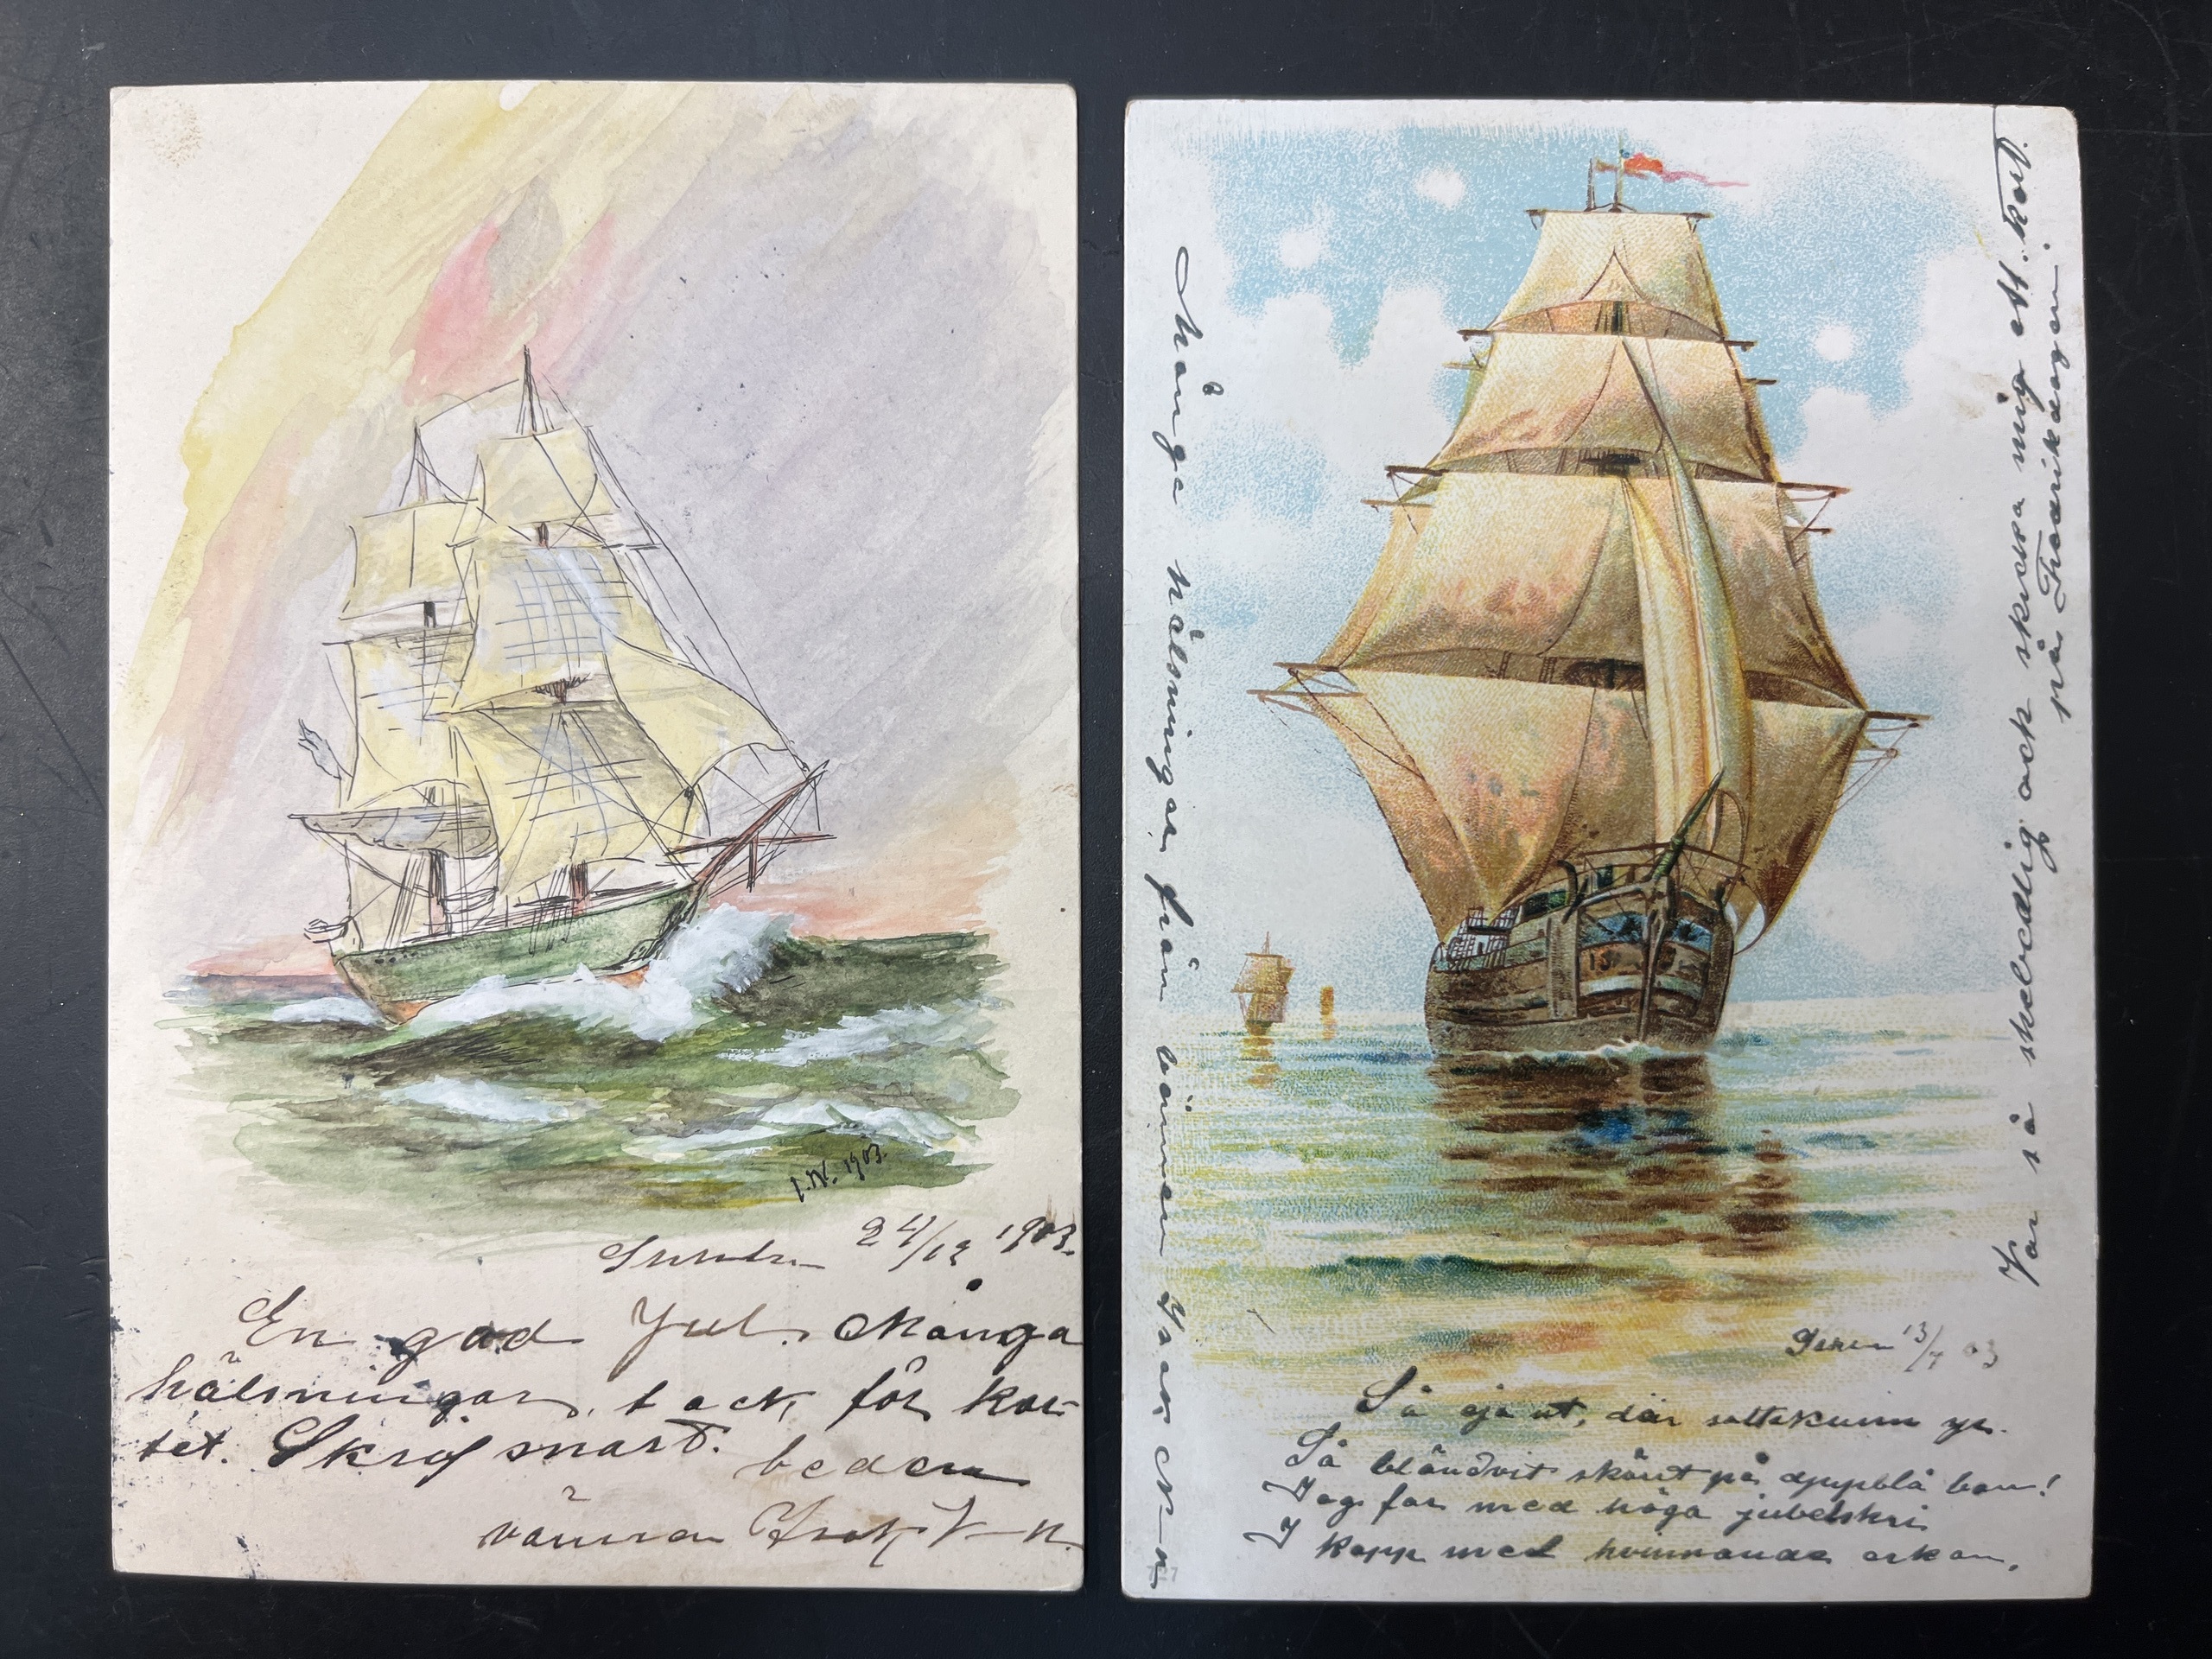 I.W. 1903.
24/12 1903.
En god Jul. Många
hälsningar, tack för kor-
tet. Skrif snart. beder
vännen Isak W-n.
Många hälsningar från vännen Isak W-n
Var så skelvedlig och skicka mig ett kort
på Fredrikdagen.
13/7 03
Så gå ut, där saltskum yr.
Så bländvit skönt på djupblå ban!
Jag far med höga jubelskri
I kapp med hvinnande orkan.
727